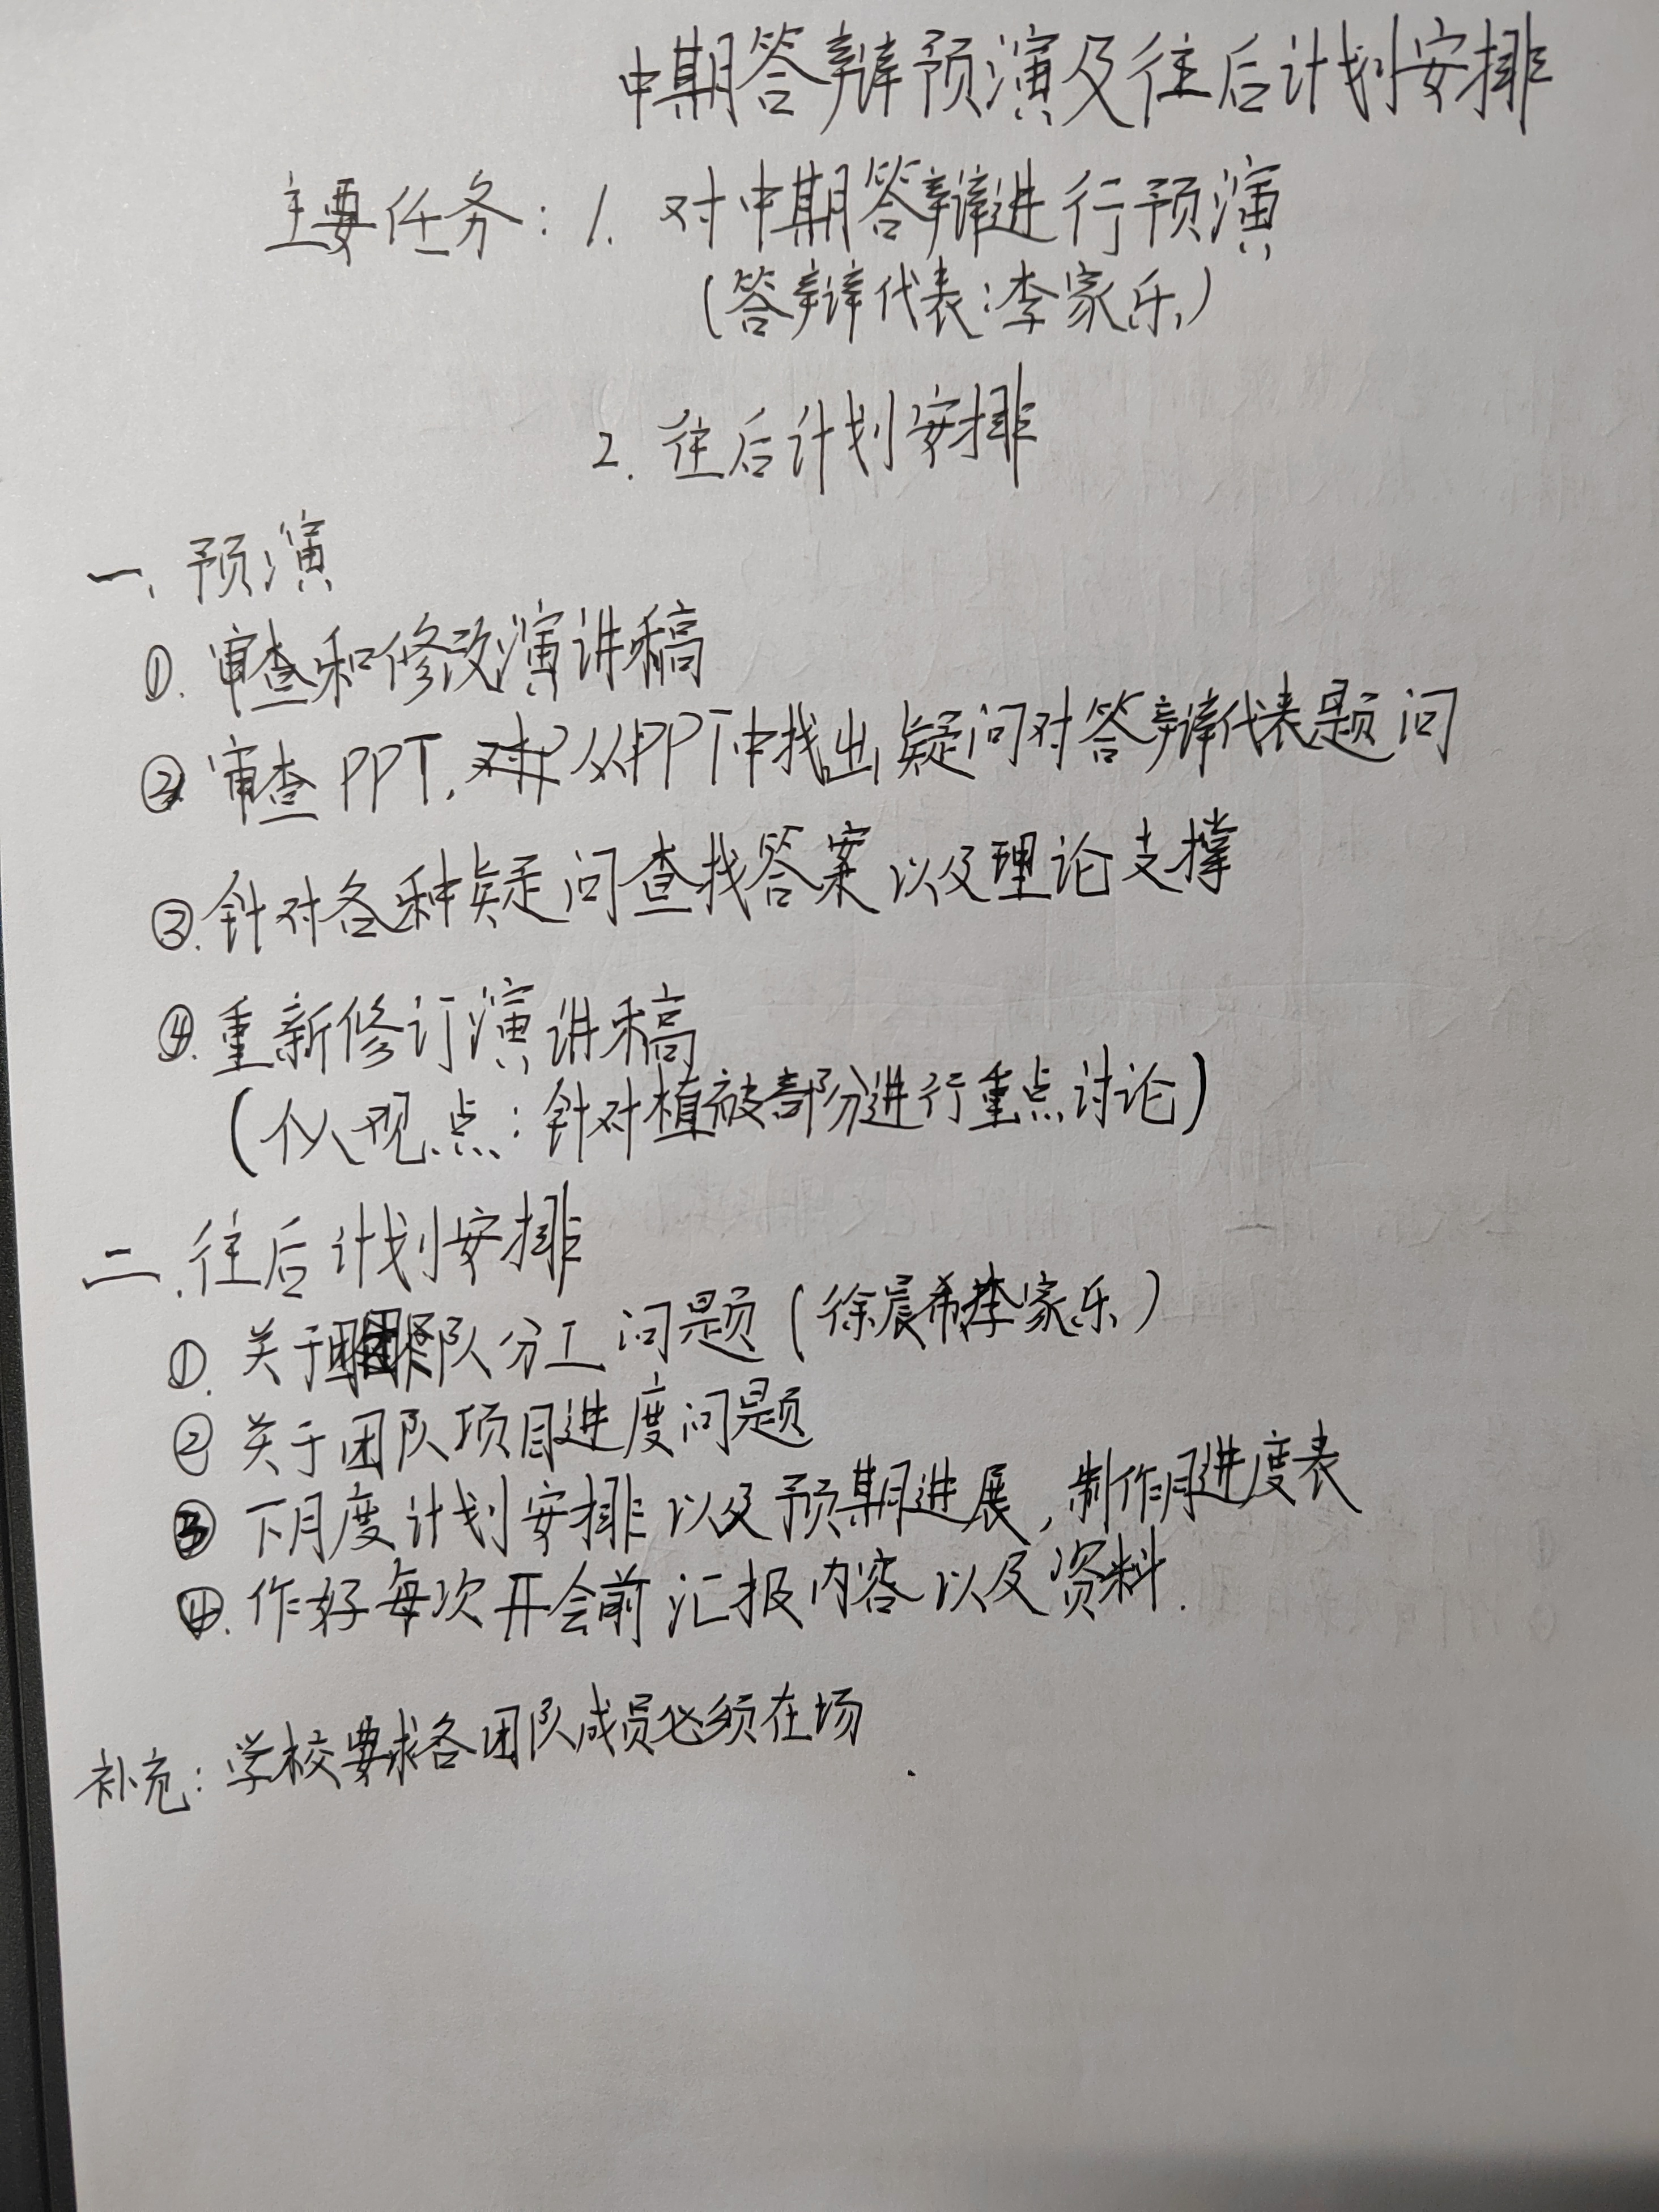 中期答辩预演及往后计划安排
主要任务：1. 对中期答辩进行预演
（答辩代表：李家乐）
2. 往后计划安排
一、预演
①. 审查和修改演讲稿
② 审查PPT，从PPT中找出疑问对答辩代表题问
③. 针对各种疑问查找答案以及理论支撑
④. 重新修订演讲稿
（个人观点：针对植被部分进行重点讨论）
二、往后计划安排
①. 关于团队分工问题（徐晨希李家乐）
② 关于团队项目进度问题
③ 下月度计划安排以及预期进展，制作月进度表
④. 作好每次开会前汇报内容以及资料.
补充：学校要求各团队成员必须在场.